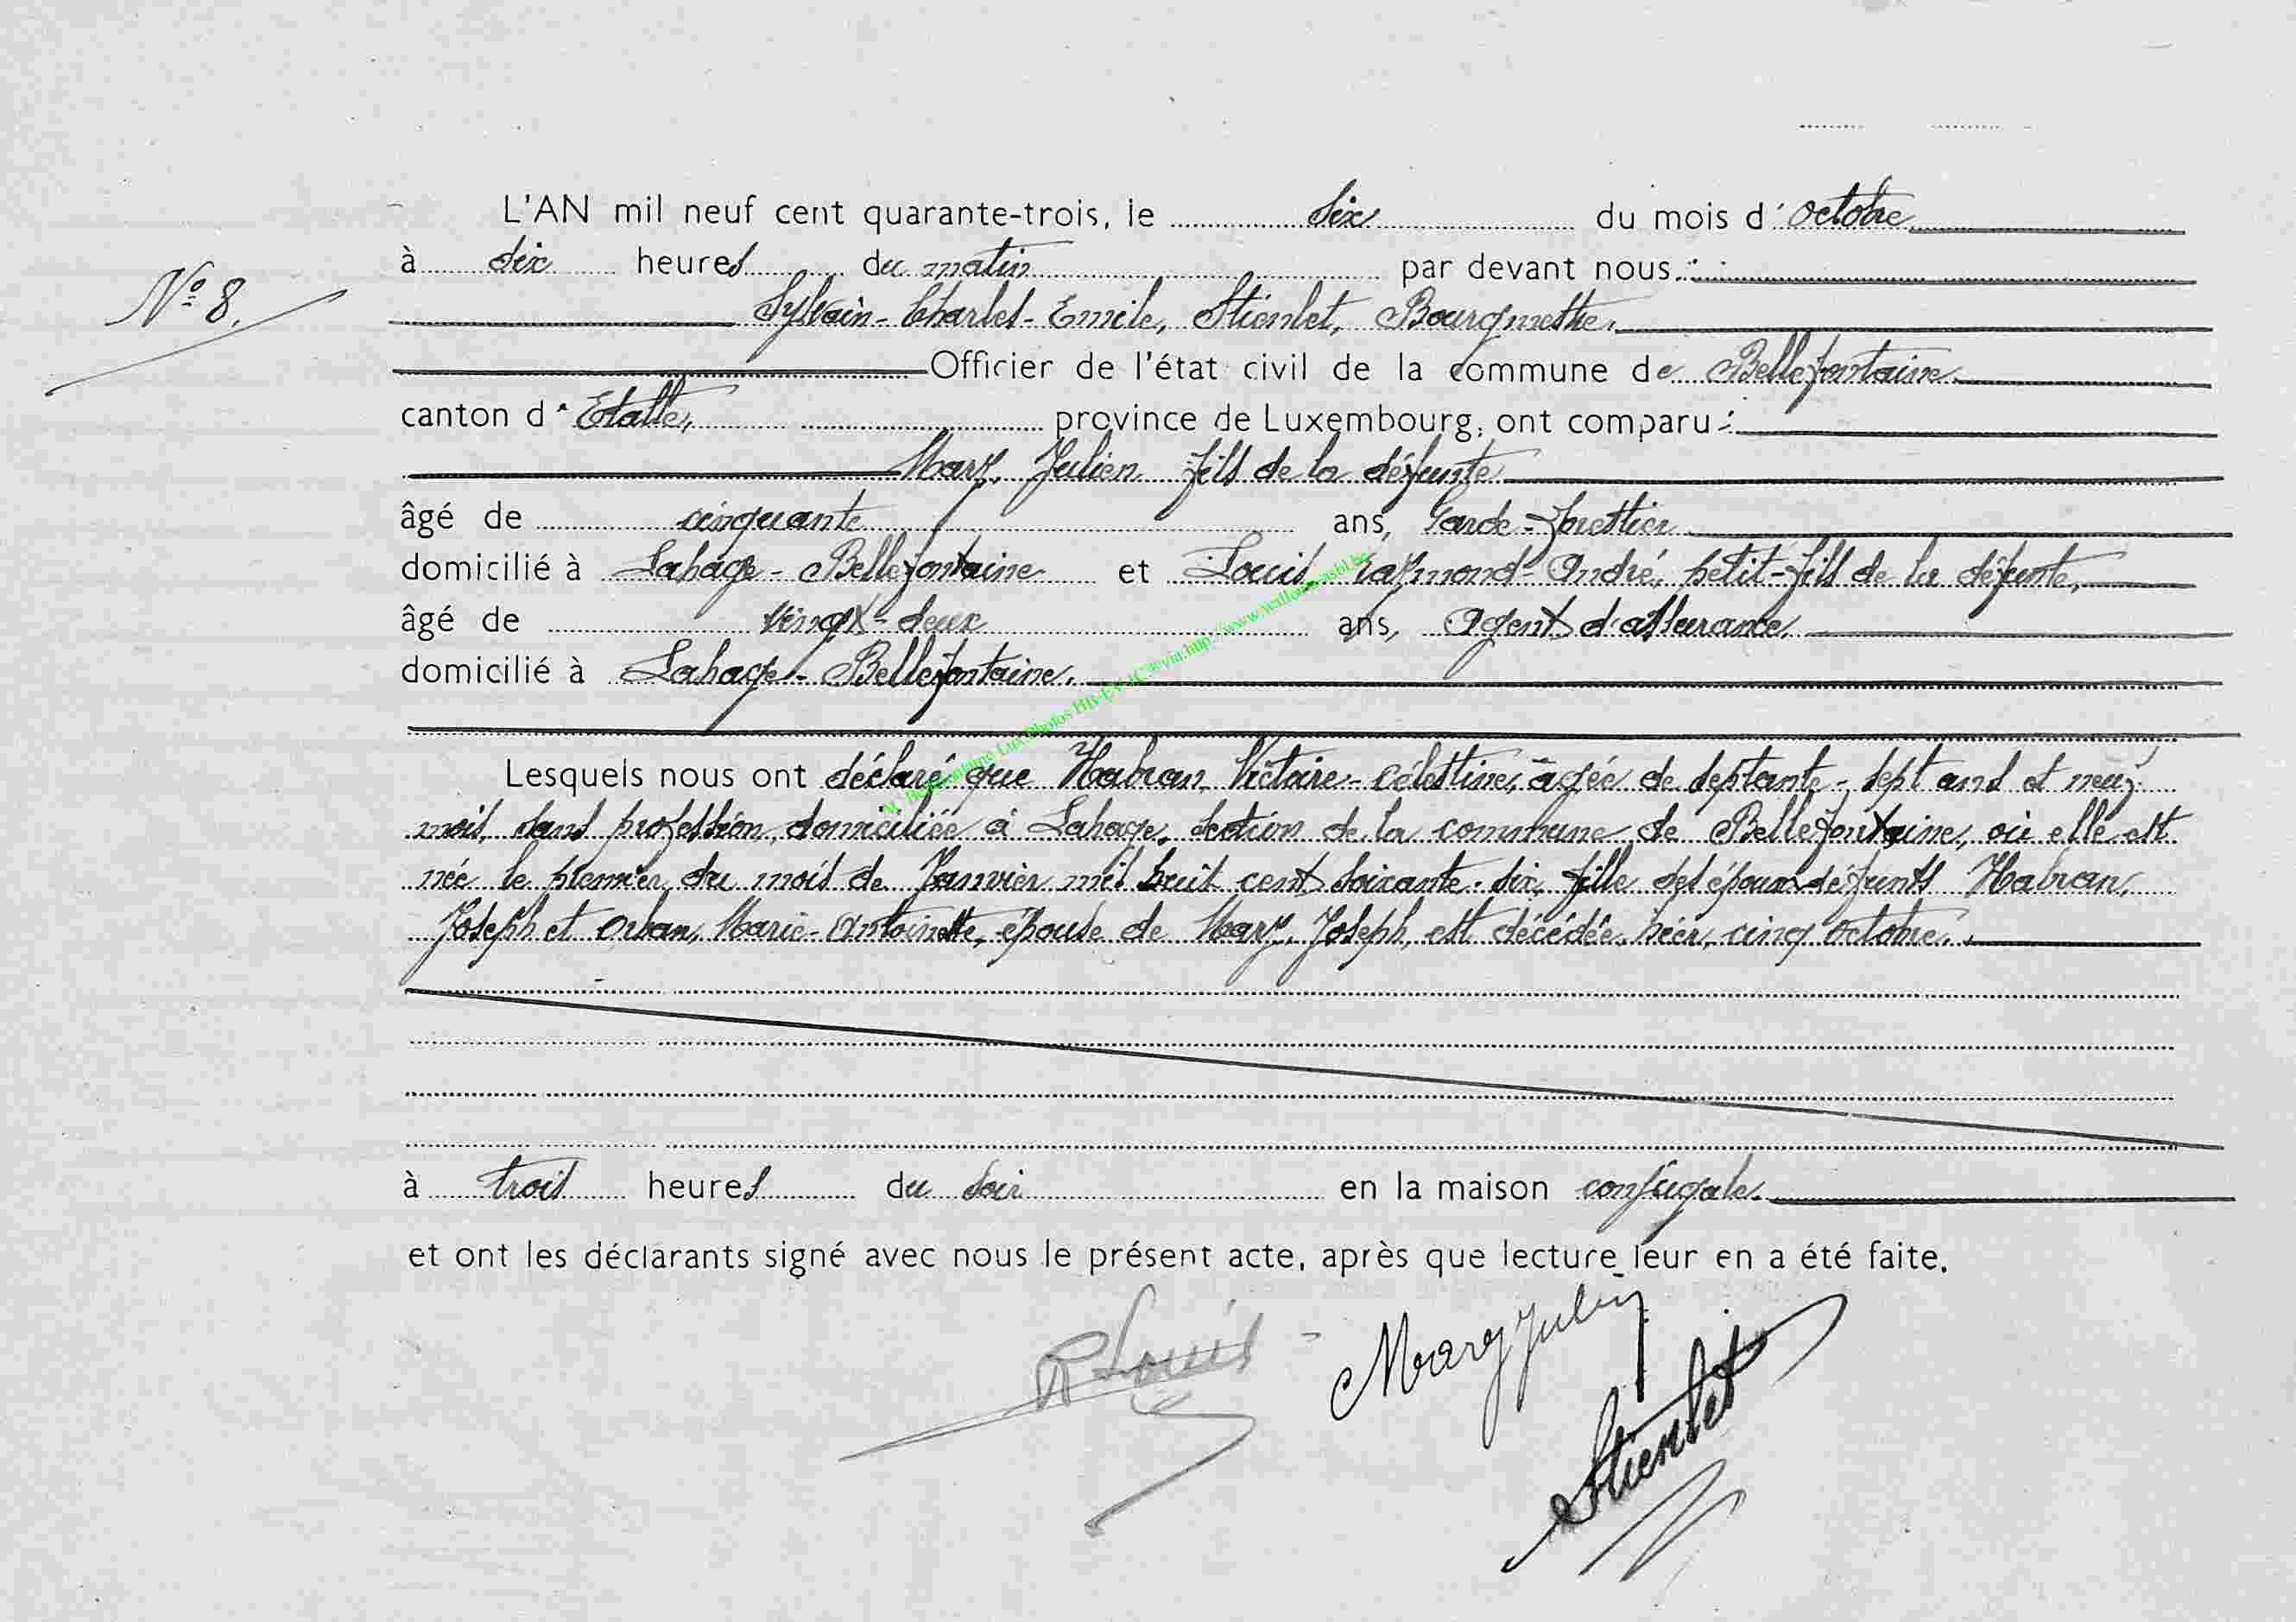 L'AN mil neuf cent quarante-trois, le six du mois d'octobre
N° 8.
à dix heures du matin par devant nous :
Sylvain-Charles-Emile, Stienlet, Bourgmestre,
Officier de l'état civil de la commune de Bellefontaine
canton d'Etalle, province de Luxembourg, ont comparu :
Mary, Julien fils de la défunte
âgé de cinquante ans, Garde-forestier
domicilié à Lahage-Bellefontaine et Louis, Raymond-André, petit-fils de la défunte,
âgé de vingt-deux ans, Agent d'assurance,
domicilié à Lahage-Bellefontaine.
Lesquels nous ont déclaré que Habran, Victoire-Célestine, âgée de septante-sept ans et neuf
mois, sans profession, domiciliée à Lahage, section de la commune de Bellefontaine, où elle est
née le premier du mois de Janvier mil huit cent soixante-six, fille des époux défunts Habran,
Joseph et Orban, Marie-Antoinette, épouse de Mary, Joseph, est décédée hier, cinq octobre.
à trois heures du soir en la maison conjugale.
et ont les déclarants signé avec nous le présent acte, après que lecture leur en a été faite.
R Louis Mary Julien
Stienlet